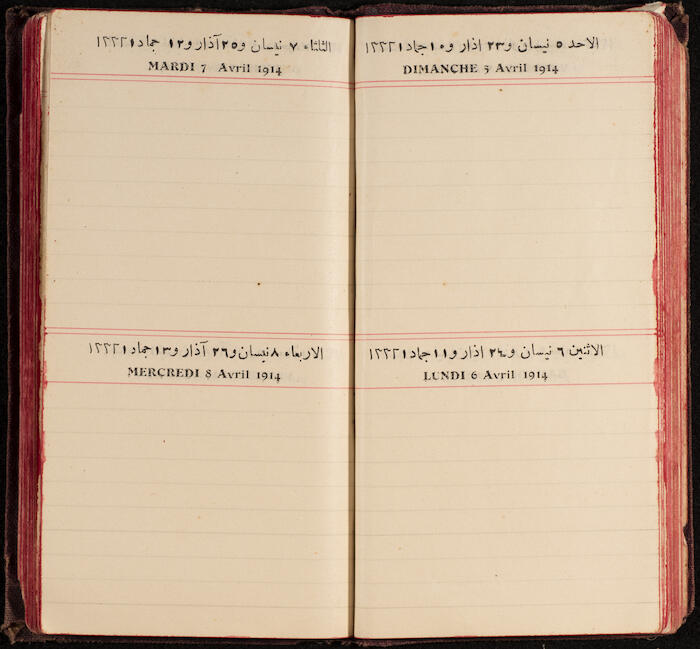 الاحد ٥ نيسان و٢٣ اذار و١٠ جماد١ ١٣٣٢
DIMANCHE 5 Avril 1914
الاثنين ٦ نيسان و٢٤ اذار و١١ جماد١ ١٣٣٢
LUNDI 6 Avril 1914
الثلثاء ٧ نيسان و٢٥ آذار و١٢ جماد١ ١٣٣٢
MARDI 7 Avril 1914
الاربعاء ٨ نيسان و٢٦ آذار و١٣ جماد١ ١٣٣٢
MERCREDI 8 Avril 1914